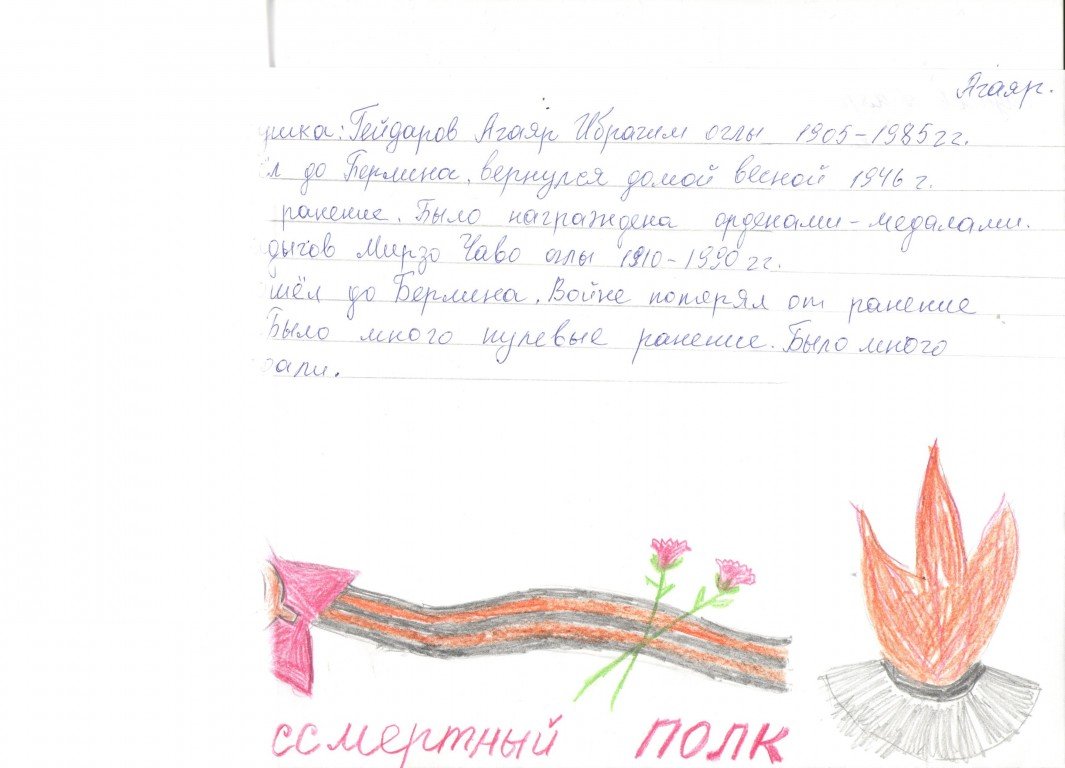 Агаяр.
ушка: Гейдаров Агаяр Ибрагим оглы 1905-1985 гг.
ёл до Берлина. вернулся домой весной 1946 г.
ранение. Было награждена орденами-медалами.
дыгов Мирзо Чаво оглы 1910-1990 гг.
шёл до Берлина. Войне потерял от ранение
Было много пулевые ранение. Было много
али.
ссмертный полк